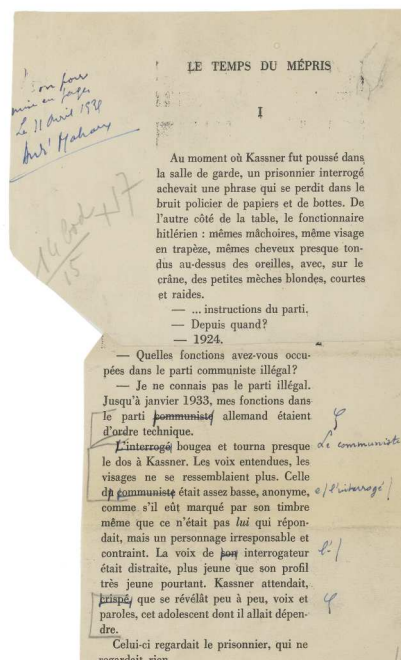 Bon pour
mise en pages
Le 11 avril 1935
André Malraux
LE TEMPS DU MÉPRIS
I
Au moment où Kassner fut poussé dans
la salle de garde, un prisonnier interrogé
achevait une phrase qui se perdit dans le
bruit policier de papiers et de bottes. De
l'autre côté de la table, le fonctionnaire
hitlérien : mêmes mâchoires, même visage
en trapèze, mêmes cheveux presque ton-
dus au-dessus des oreilles, avec, sur le
crâne, des petites mèches blondes, courtes
et raides.
— ... instructions du parti.
— Depuis quand?
— 1924.
— Quelles fonctions avez-vous occu-
pées dans le parti communiste illégal?
— Je ne connais pas le parti illégal.
Jusqu'à janvier 1933, mes fonctions dans
le parti communiste allemand étaient
d'ordre technique.
L'interrogé bougea et tourna presque Le communiste
le dos à Kassner. Les voix entendues, les
visages ne se ressemblaient plus. Celle
du communiste était assez basse, anonyme, e/ l'interrogé/
comme s'il eût marqué par son timbre
même que ce n'était pas lui qui répon-
dait, mais un personnage irresponsable et
contraint. La voix de son interrogateur l'/
était distraite, plus jeune que son profil
très jeune pourtant. Kassner attendait,
crispé, que se révélât peu à peu, voix et
paroles, cet adolescent dont il allait dépen-
dre.
Celui-ci regardait le prisonnier, qui ne
regardait rien.